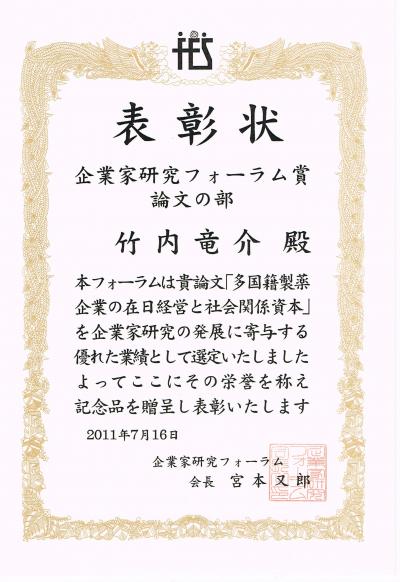 FES
表彰状
企業家研究フォーラム賞
論文の部
竹内竜介 殿
本フォーラムは貴論文「多国籍製薬
企業の在日経営と社会関係資本」
を企業家研究の発展に寄与する
優れた業績として選定いたしました
よってここにその栄誉を称え
記念品を贈呈し表彰いたします
2011年7月16日
企業家研究フォーラム
会長 宮本又郎